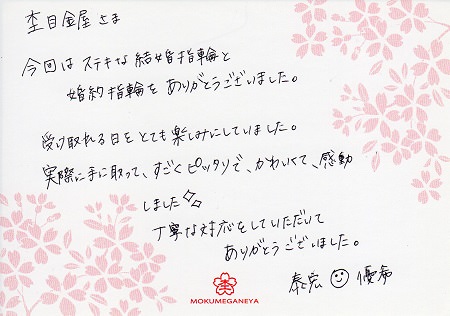 杢目金屋さま
今回はステキな結婚指輪と
婚約指輪をありがとうございました。
受け取れる日をとても楽しみにしていました。
実際に手に取って、すごくピッタリで、かわいくて、感動
しました
丁寧な対応をしていただいて
ありがとうございました。
泰宏 優希
MOKUMEGANEYA